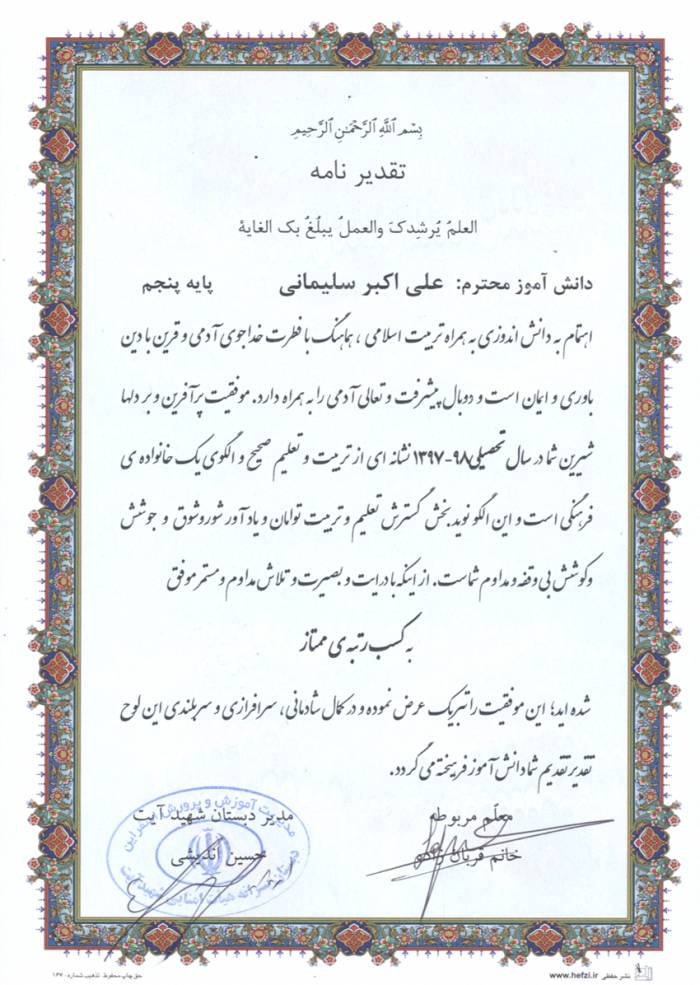 بِسْمِ اللَّهِ الرَّحْمَنِ الرَّحِيمِ
تقدیر نامه
العلمُ يُرشِدكَ والعملُ يبلُغُ بک الغایة
دانش آموز محترم: علی اکبر سلیمانی پایه پنجم
اهتمام به دانش اندوزی به همراه تربیت اسلامی ، هماهنگ با فطرت خداجوی آدمی و قرین با دین
باوری و ایمان است و دو بال پیشرفت و تعالی آدمی را به همراه دارد. موفقیت پرآفرین و بر دلها
شیرین شما در سال تحصیلی ۹۸-۱۳۹۷ نشانه ای از تربیت و تعلیم صحیح و الگوی یک خانواده ی
فرهنگی است و این الگو نوید بخش گسترش تعلیم و تربیت توامان و یادآور شور و شوق و جوشش
و کوشش بی وقفه و مداوم شماست. از اینکه با درایت و بصیرت و تلاش مداوم و مستمر موفق
به کسب رتبه ی ممتاز
شده اید؛ این موفقیت را تبریک عرض نموده و در کمال شادمانی، سرافرازی و سربلندی این لوح
تقدیر تقدیم شما دانش آموز فرهیخته می گردد.
معلّم مربوطه
خانم قربان
مدیر دبستان شهید آیت
حسین اندیشی
مدیریت آموزش و پرورش اسفراین
نشر حفظی www.hefzi.ir
حق چاپ محفوظ. تذهیب شماره ۱۴۷۰